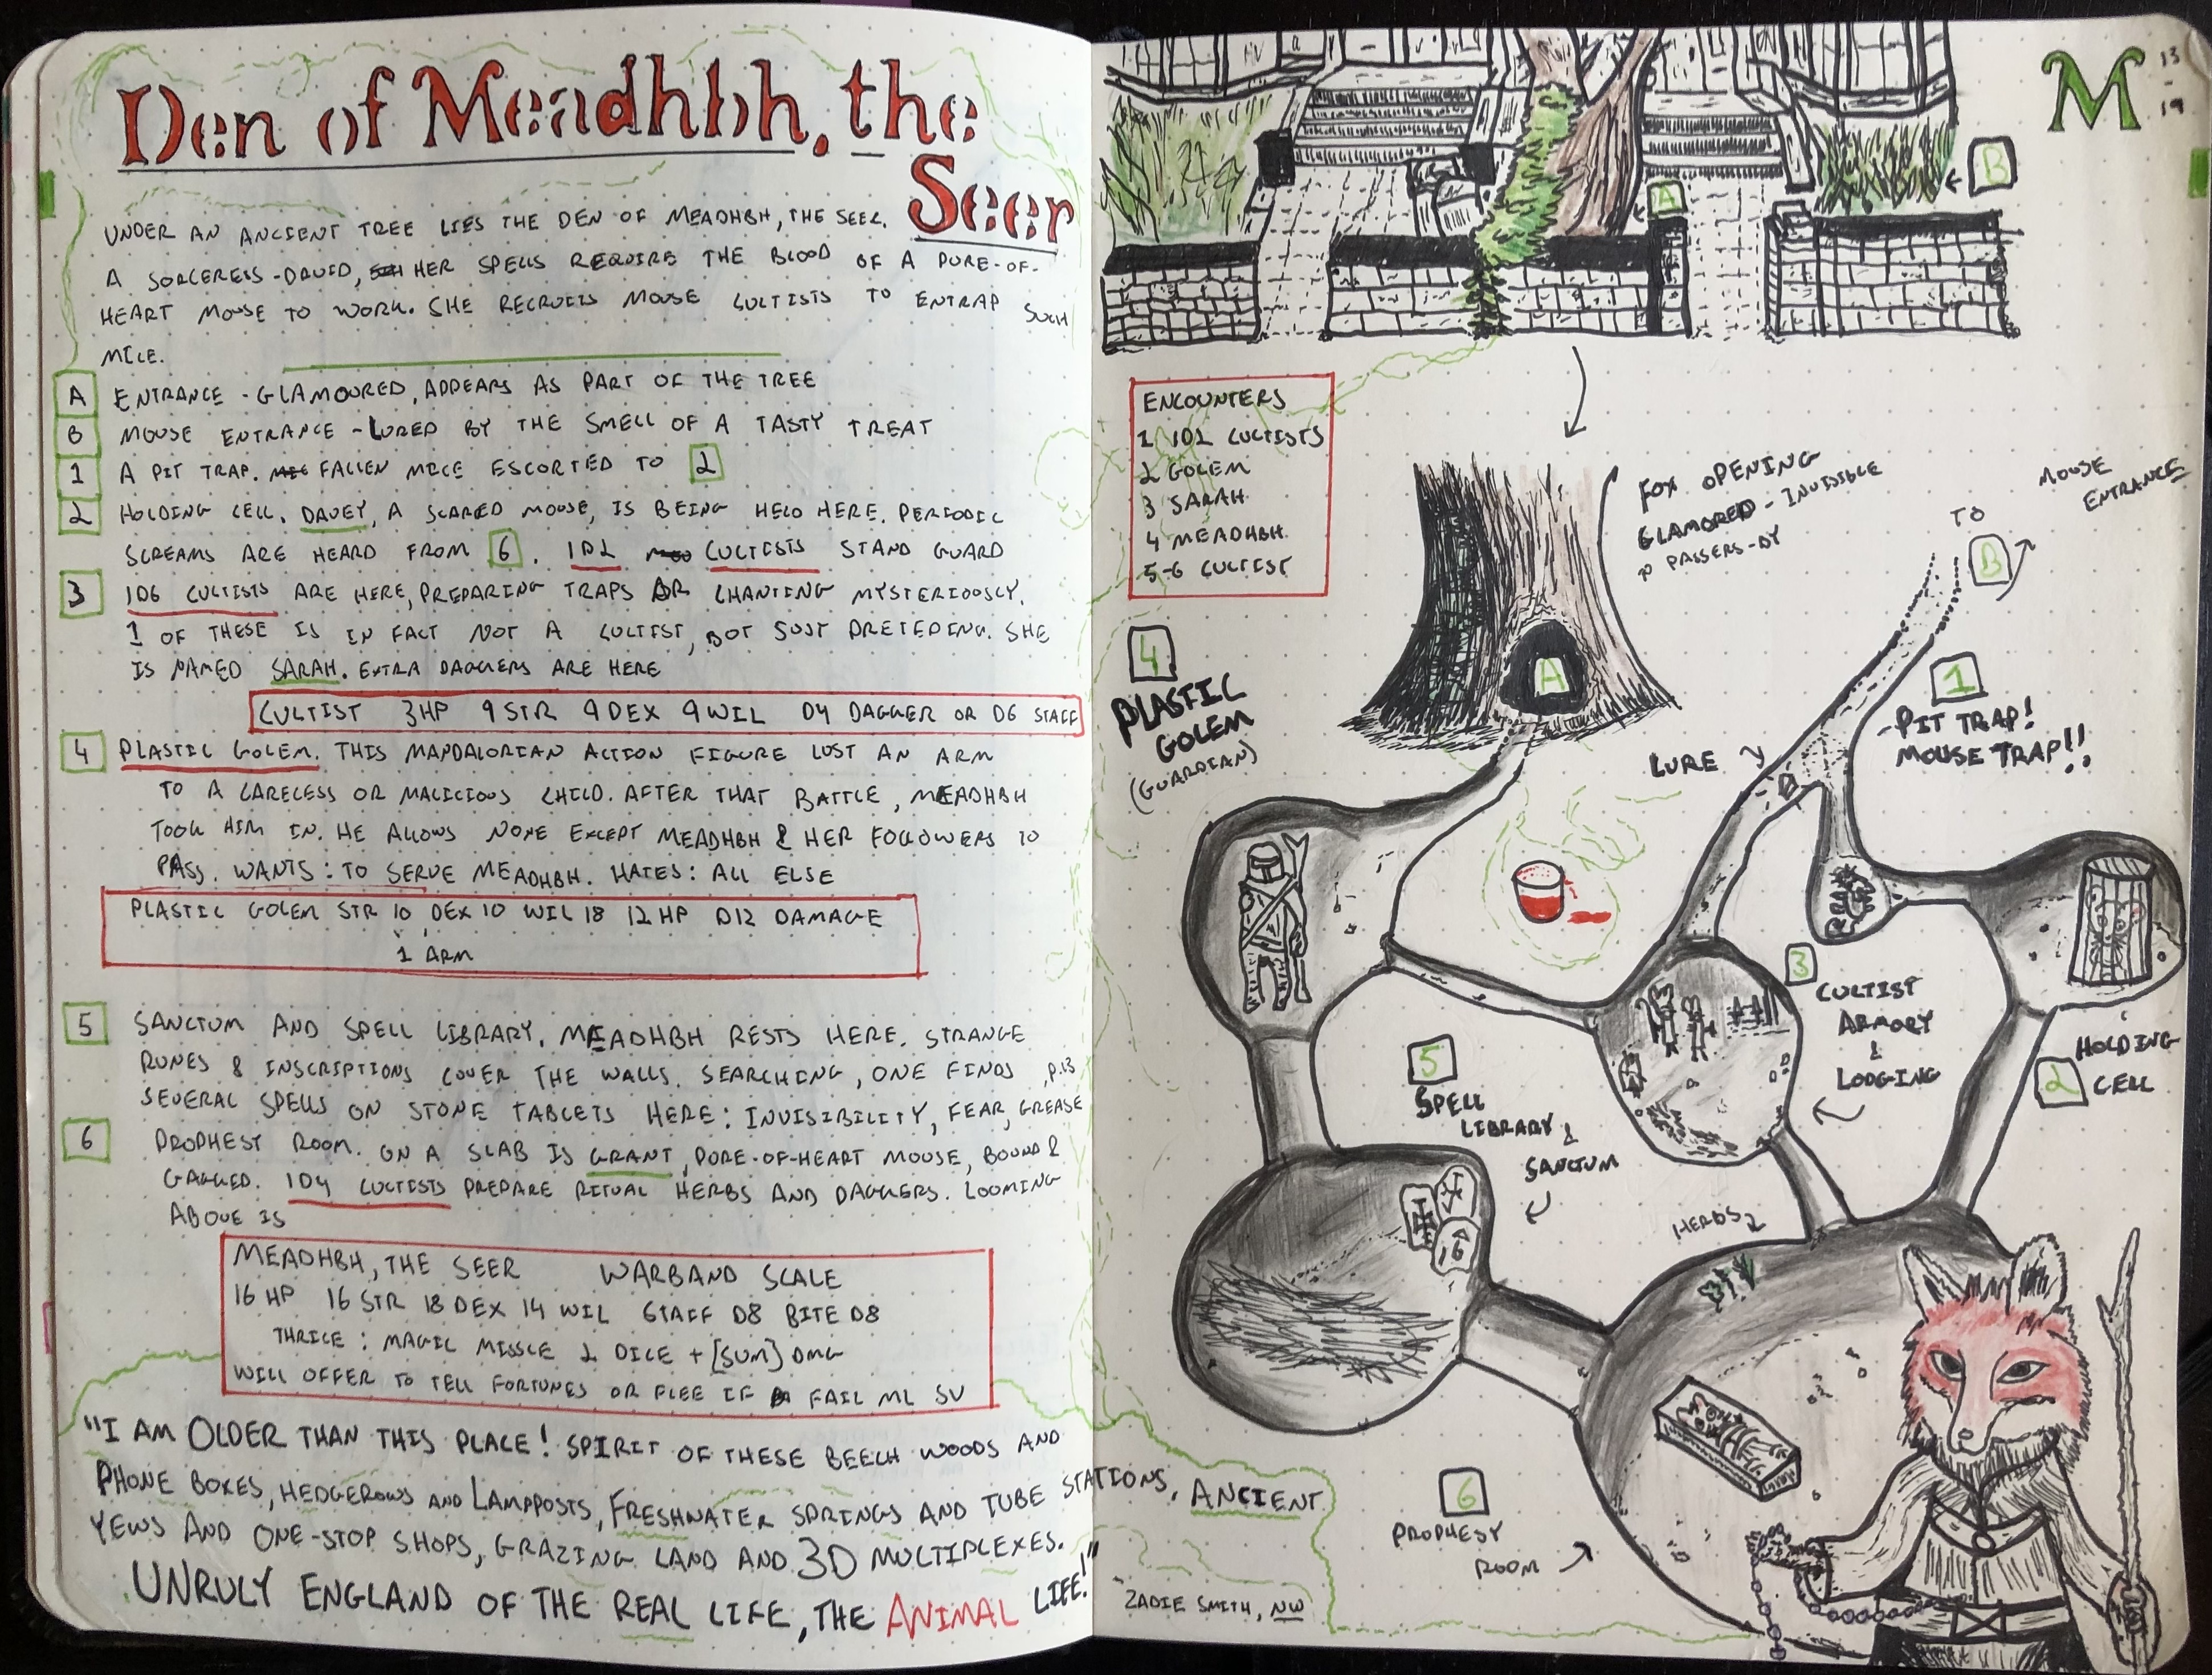 Den of Meadhbh, the
Seer
UNDER AN ANCIENT TREE LIES THE DEN OF MEADHBH, THE SEER.
A SORCERESS-DRUID, HER SPELLS REQUIRE THE BLOOD OF A PURE-OF-
HEART MOUSE TO WORK. SHE RECRUITS MOUSE CULTISTS TO ENTRAP SUCH
MICE.
A ENTRANCE - GLAMOURED, APPEARS AS PART OF THE TREE
B MOUSE ENTRANCE - LURED BY THE SMELL OF A TASTY TREAT
1 A PIT TRAP. FALLEN MICE ESCORTED TO 2
2 HOLDING CELL. DAVEY, A SCARED MOUSE, IS BEING HELD HERE. PERIODIC
SCREAMS ARE HEARD FROM 6. 1D2 CULTISTS STAND GUARD
3 1D6 CULTISTS ARE HERE, PREPARING TRAPS OR CHANTING MYSTERIOUSLY.
1 OF THESE IS IN FACT NOT A CULTIST, BUT JUST PRETEDING. SHE
IS NAMED SARAH. EXTRA DAGGERS ARE HERE
CULTIST 3HP 9 STR 9 DEX 9 WIL D4 DAGGER OR D6 STAFF
4 PLASTIC GOLEM. THIS MANDALORIAN ACTION FIGURE LOST AN ARM
TO A CARELESS OR MALICIOUS CHILD. AFTER THAT BATTLE, MEADHBH
TOOK HIM IN. HE ALLOWS NONE EXCEPT MEADHBH & HER FOLLOWERS TO
PASS. WANTS: TO SERVE MEADHBH. HATES: ALL ELSE
PLASTIC GOLEM STR 10 DEX 10 WIL 18 12 HP D12 DAMAGE
1 ARM
5 SANCTUM AND SPELL LIBRARY. MEADHBH RESTS HERE. STRANGE
RUNES & INSCRIPTIONS COVER THE WALLS. SEARCHING, ONE FINDS P.13
SEVERAL SPELLS ON STONE TABLETS HERE: INVISIBILITY, FEAR, GREASE
6 PROPHESY ROOM. ON A SLAB IS GRANT, PURE-OF-HEART MOUSE, BOUND &
GAGGED. 1D4 CULTISTS PREPARE RITUAL HERBS AND DAGGERS. LOOMING
ABOVE IS
MEADHBH, THE SEER WARBAND SCALE
16 HP 16 STR 18 DEX 14 WIL STAFF D8 BITE D8
THRICE: MAGIC MISSLE 2 DICE + [SUM] DMG
WILL OFFER TO TELL FORTUNES OR FLEE IF FAIL ML SV
"I AM OLDER THAN THIS PLACE! SPIRIT OF THESE BEECH WOODS AND
PHONE BOXES, HEDGEROWS AND LAMPPOSTS, FRESHWATER SPRINGS AND TUBE STATIONS, ANCIENT
YEWS AND ONE-STOP SHOPS, GRAZING LAND AND 3D MULTIPLEXES.
UNRULY ENGLAND OF THE REAL LIFE, THE ANIMAL LIFE!"
ZADIE SMITH, NW
M
13
-
19
A
B
ENCOUNTERS
1 1D2 CULTISTS
2 GOLEM
3 SARAH
4 MEADHBH
5-6 CULTIST
FOX OPENING
GLAMORED - INVISIBLE
TO PASSERS-BY
MOUSE
ENTRANCE
TO
B
A
4
PLASTIC
GOLEM
(GUARDIAN)
1
- PIT TRAP!
MOUSE TRAP!!
LURE
3
CULTIST
ARMORY
&
LODGING
HOLDING
2 CELL
5
SPELL
LIBRARY &
SANCTUM
HERBS
6
PROPHESY
ROOM